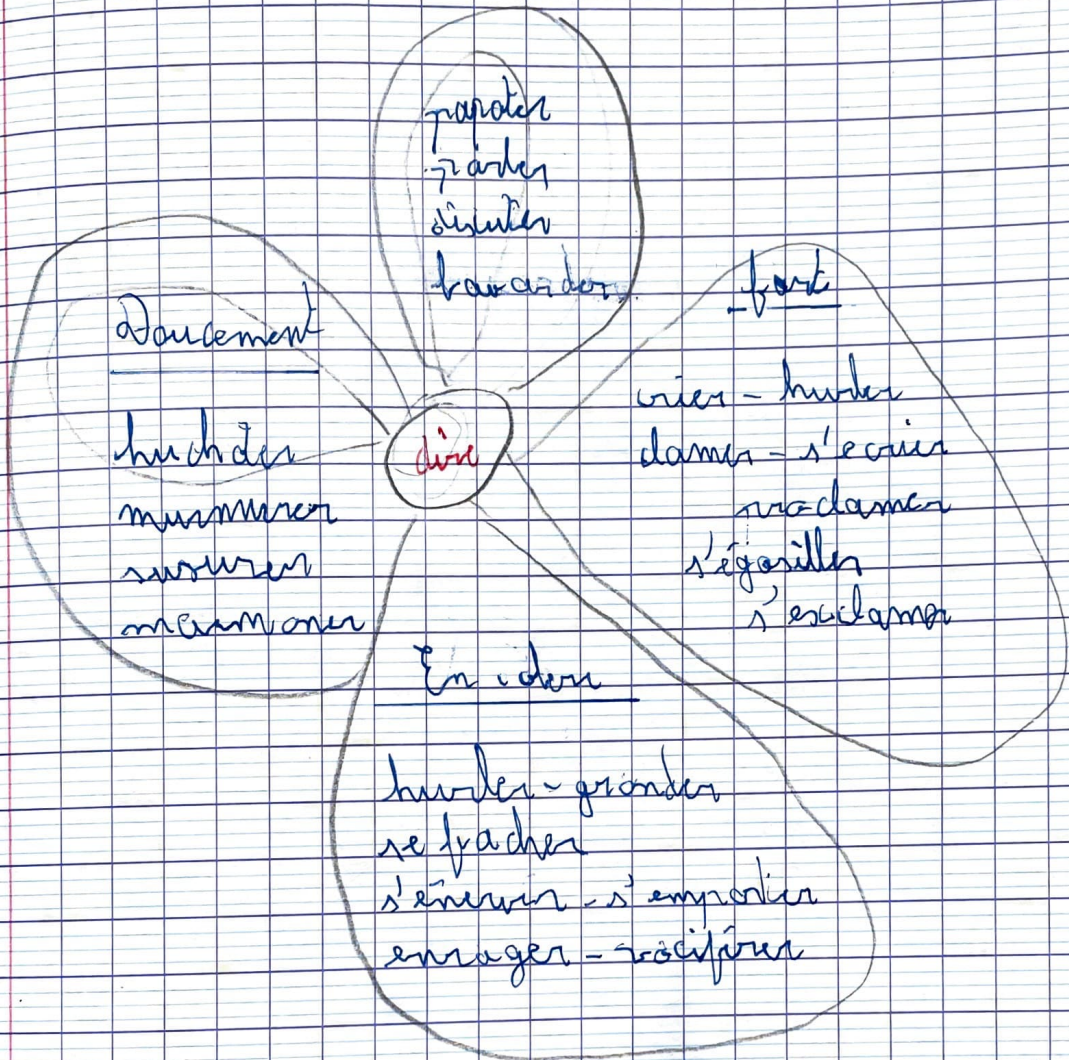 papoter
parler
discuter
bavarder
Doucement
huchoter
murmurer
susurer
marmoner
dire
fort
crier - hurler
clamer - s'ecrier
proclamer
s'égosiller
s'esclamer
En colère
hurler - gronder
se facher
s'énerver - s'emporter
enrager - vociférer